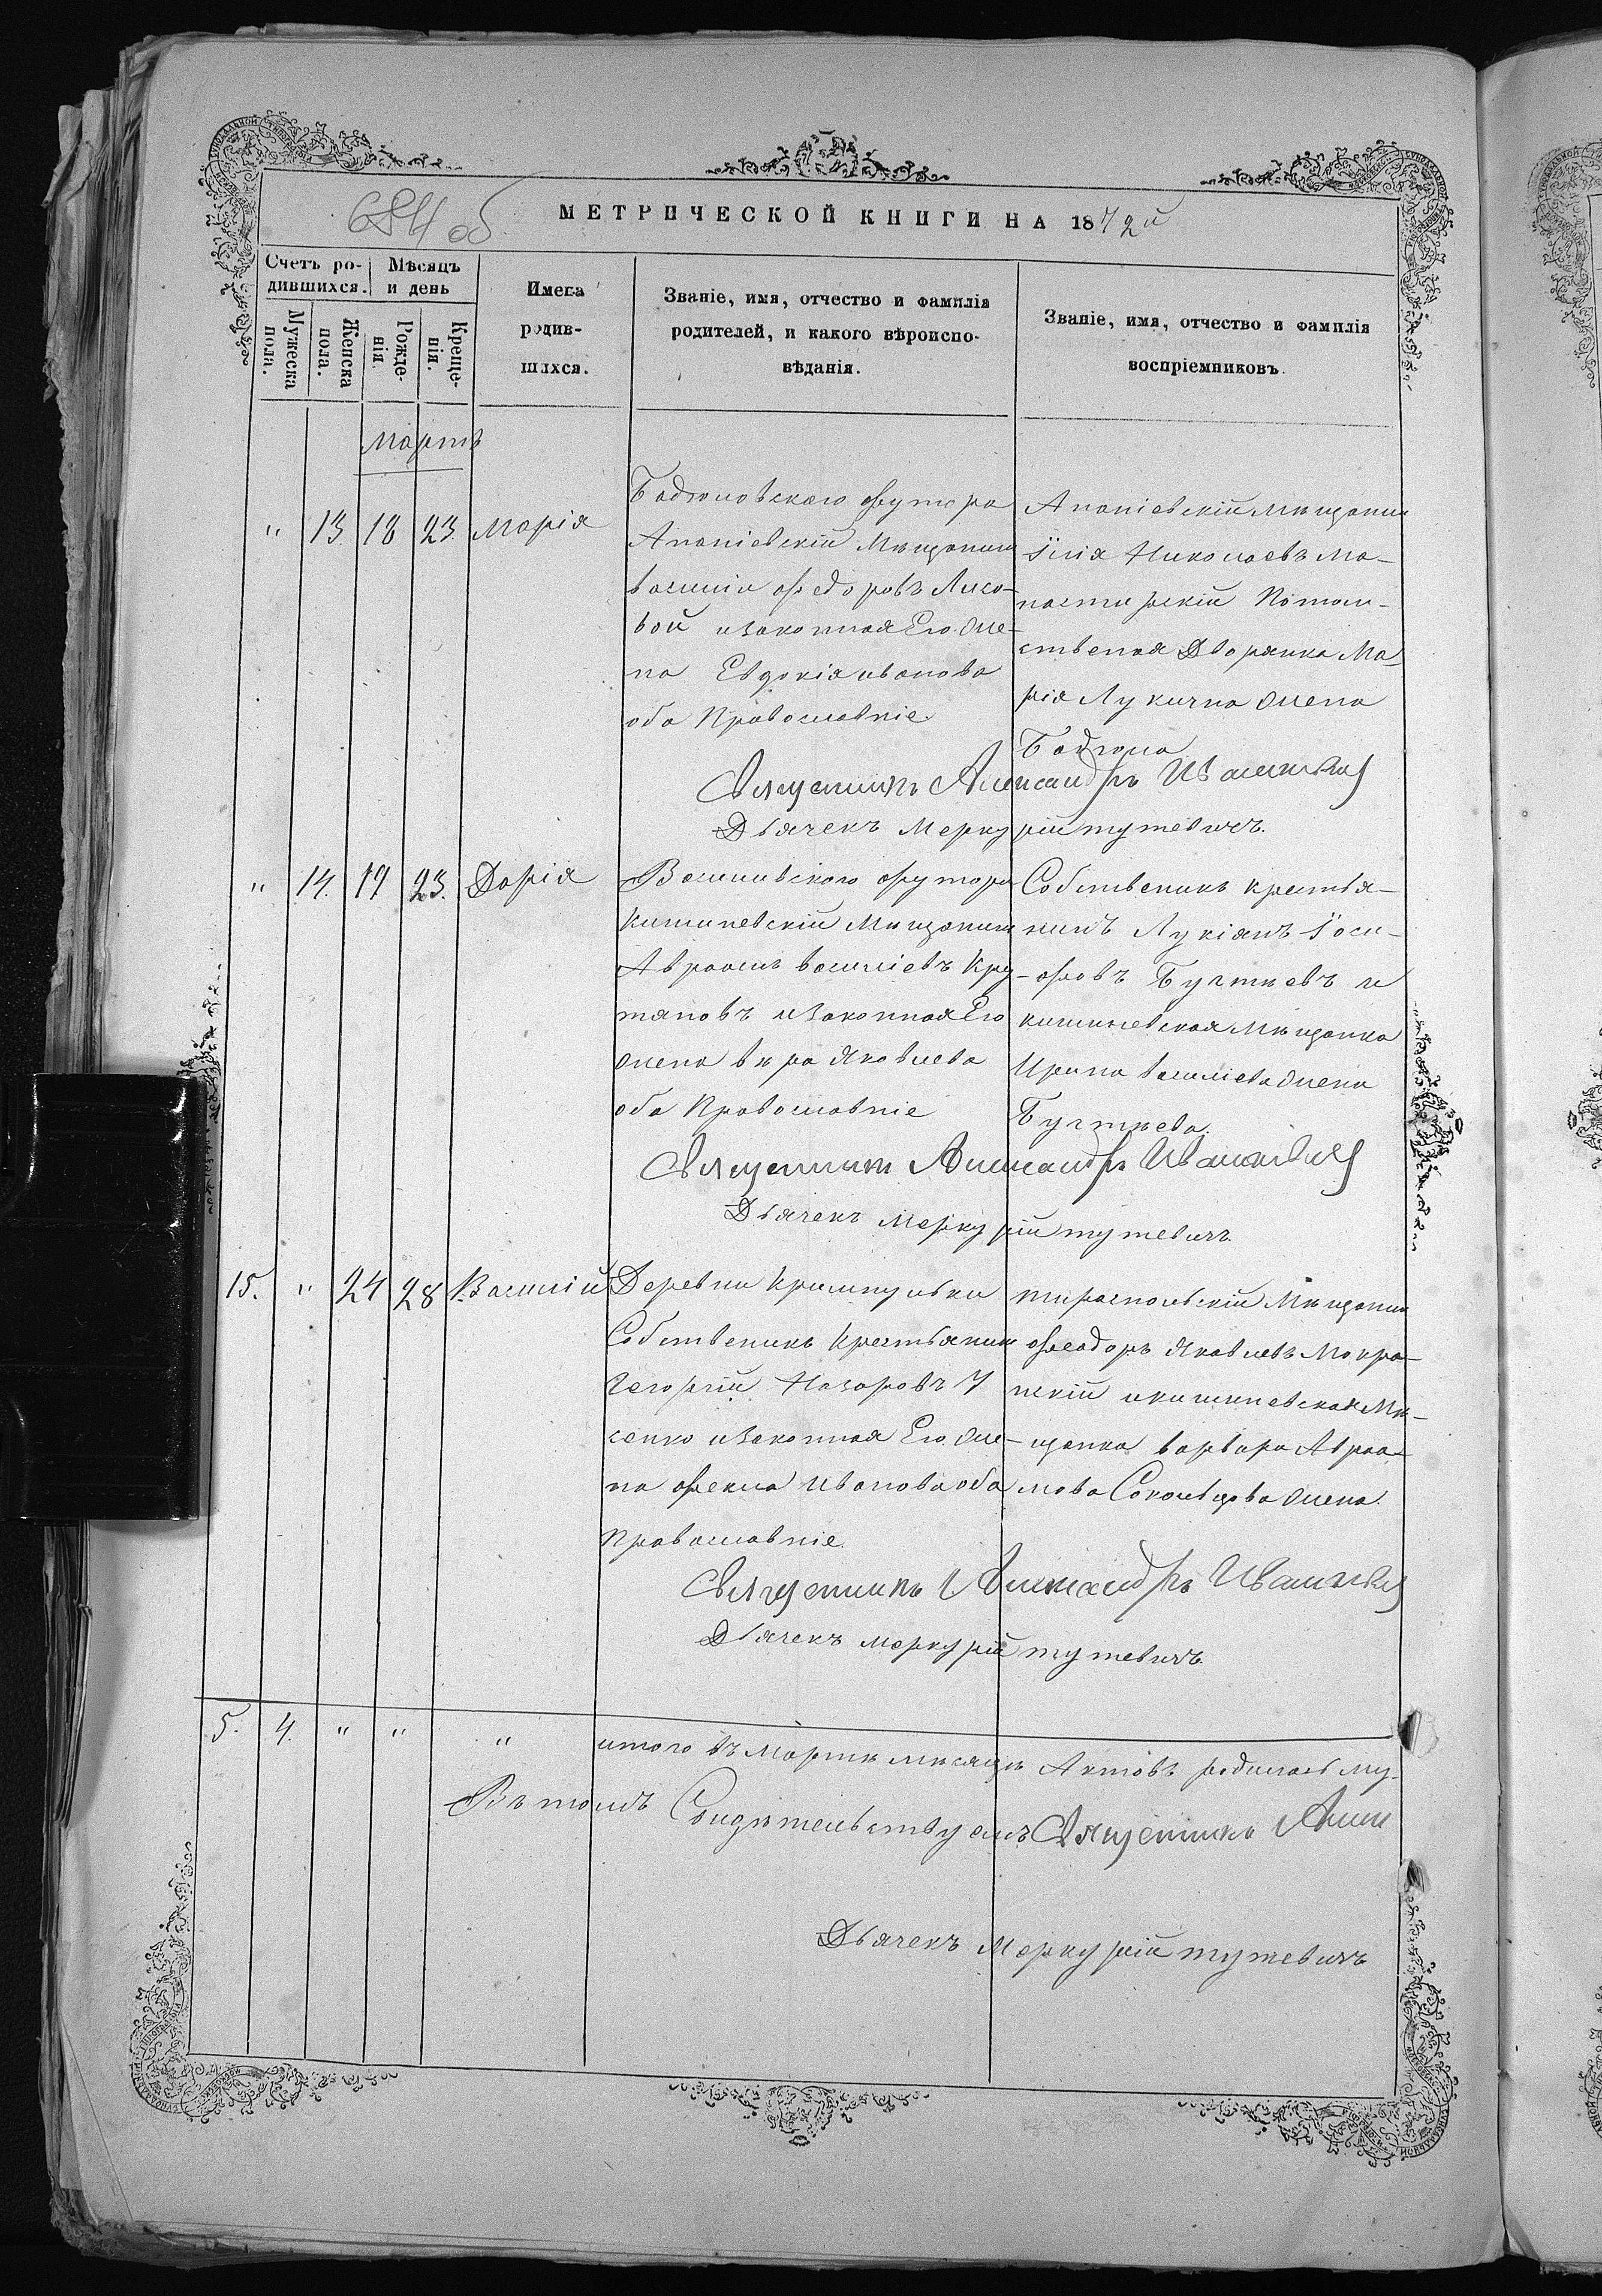 684 об
МЕТРИЧЕСКОЙ КНИГИ НА 1872й
Счетъ ро-
дившихся.
Мѣсяцъ
и день
Мужеска
пола.
Женска
пола.
Рожде-
нія.
Креще-
нія.
Имена
родив-
шихся.
Званіе, имя, отчество и фамилія
родителей, и какого вѣроиспо-
вѣданія.
Званіе, имя, отчество и фамилія
воспріемниковъ.
Мартъ
" 13. 18 23. Марія
Бадюловскаго футора
Ананіевскій Мѣщанинъ
Василій Федоровъ Лисо-
вой изаконная Его Же-
на Евдокія иванова
оба Православніе
Ананіевскій Мѣщанинъ
Ілія Николаевъ Мо-
настирскій Потом-
ственая Дворянка Ма-
рія Лукична жена
Бадюла
Священникъ Александръ Ивашкевич
Дьячекъ Меркурій тутевичъ.
" 14. 19 23. Дарія
футора
Кишиневскій Мѣщанинъ
Авраамъ Василіевъ Кру-
тяновъ изаконная Его
жена вѣра Яковлева
оба Православніе
Собственикъ крестья-
нинъ Лукіянъ Іоси-
фовъ Бугтяевъ и
кишиневская Мѣщанка
Ирина василіева жена
Бугтяева.
Священникъ Александръ Ивашкевич
Дьячекъ Меркурій тутевичъ.
15. " 24 28 Василій
Деревни
Собственикъ Крестьянинъ
Георгій Назаровъ У
сенко изаконная Его Же-
на фекла Иванова оба
православніе.
тираспольскій Мѣщанинъ
Феодоръ Яковлевъ Мокра-
нскій икишиневская Мѣ-
щанка варвара Авраа-
мова Соколвцова жена.
Священникъ Александръ Ивашкевич
Дьячекъ Меркурій тутевичъ.
5. 4. " " " итого въ Мартѣ мѣсяцѣ Актовъ родилось му-
Въ томъ Свидѣтельствуемъ Священникъ Алек
Дьячекъ Меркурій тутевичъ